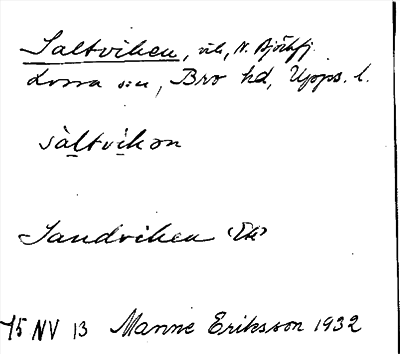 Saltviken, vik, N. Björkfj.
Lossa sn, Bro hd, Upps. l.
sàltvikən
Sandviken (Ek)
75 NV 13 Manne Eriksson 1932